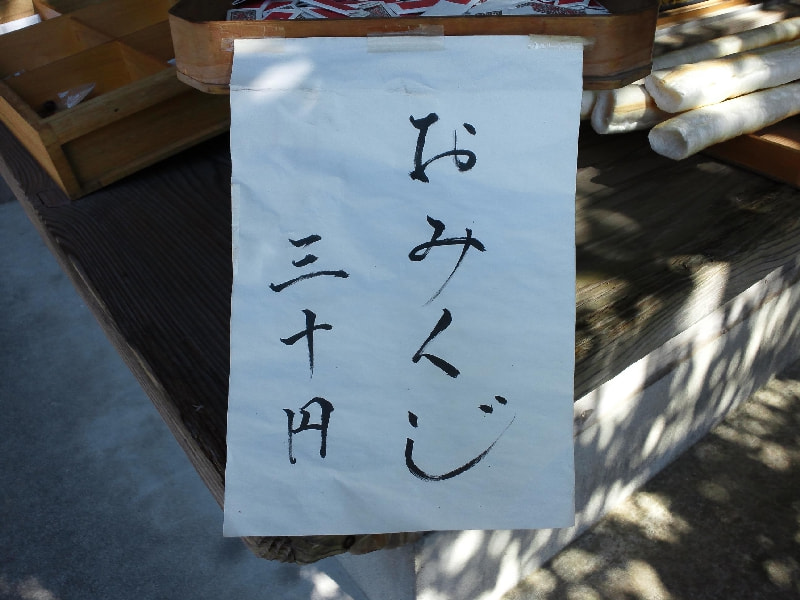 おみくじ
三十円